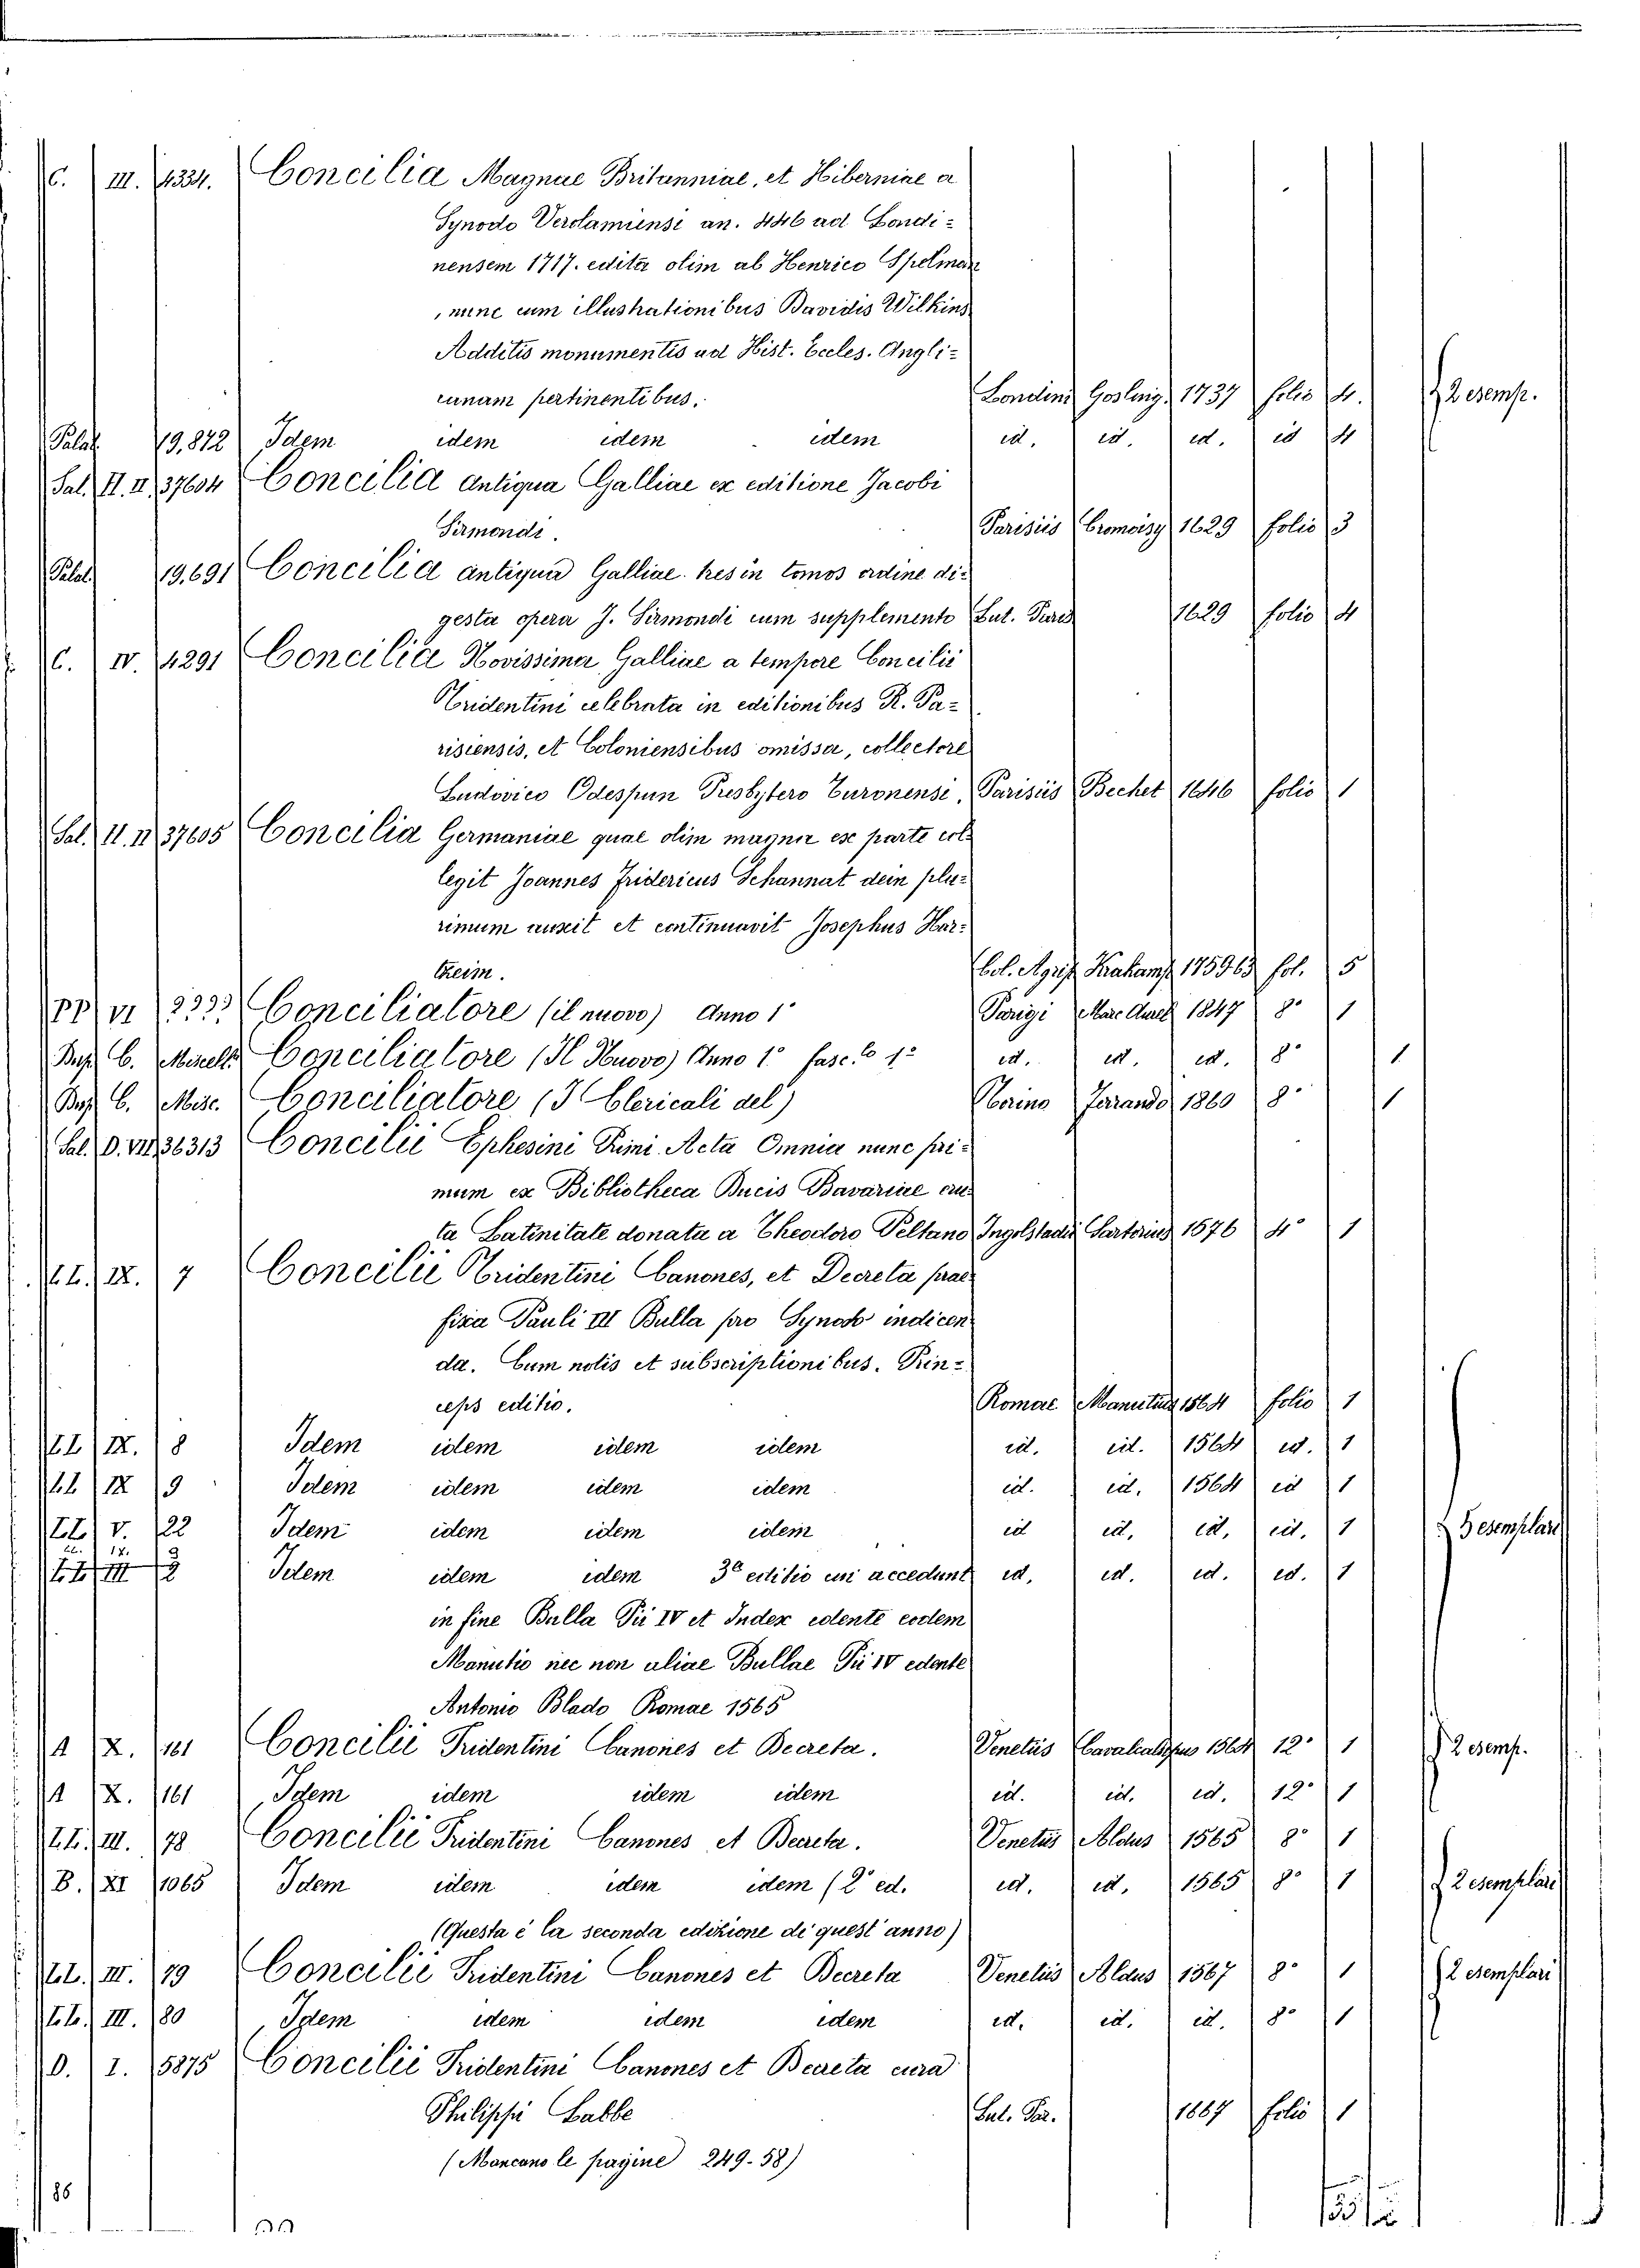 C. III. 4334. Concilia Magnae Britanniae, et Hiberniae a
Synodo Verolamiensi an. 446 ad Londi-
nensem 1717. edita olim ab Henrico Spelman
, nunc cum illustrationibus Davidis Wilkins
Additis monumentis ad Hist. Eccles. Angli-
canam pertinentibus. Londini Gosling. 1737 folio 4. 2 esemp.
Palat. 19,872 Idem idem idem idem id. id. id. id 4
Sal. II. II. 37604 Concilia Antiqua Galliae ex editione Jacobi
Sirmondi. Parisiis Cromoisy 1629 folio 3
Palat. 19.691 Concilia antiqua Galliae tres in tomos ordine di-
gesta opera J. Sirmondi cum supplemento Lut. Paris 1629 folio 4
C. IV. 4291 Concilia Novissima Galliae a tempore Concilii
Tridentini celebrata in editionibus R. Pa-
risiensis, et Coloniensibus omissa, collectore
Ludovico Odespun Presbytero Turonensi, Parisiis Bechet 1646 folio 1
Sal. II. II 37605 Concilia Germaniae quae olim magna ex parte col-
legit Joannes Fridericus Schannat dein plu-
rimum auxit et continuavit Josephus Har-
theim. Col. Agrip. Krakamp 175963 fol. 5
PP. VI 2333 Conciliatore (il nuovo) Anno 1° Parigi Marc Aurel 1847 8° 1
Bus. C. Miscell. Conciliatore (Il Nuovo) Anno 1° fasc.lo 1° id. id. id. 8° 1
Bus. C. Misc. Conciliatore (I Clericali del) Torino Ferrando 1860 8° 1
Sal. D. VII. 36313 Concilii Ephesini Primi Acta Omnia nunc pri-
mum ex Bibliotheca Ducis Bavariae eru-
ta Latinitate donata a Theodoro Peltano Ingolstadii Sartorius 1576 4° 1
L.L. IX. 7 Concilii Tridentini Canones, et Decreta prae-
fixa Pauli III Bulla pro Synodo indicen-
da. Cum notis et subscriptionibus. Prin-
ceps editio. Romae Manutius 1564 folio 1
L.L. IX. 8 Idem idem idem idem id. id. 1564 id. 1
L.L. IX 9 Idem idem idem idem id. id. 1564 id 1
L.L. V. 122 Idem idem idem idem id id, id, id. 1 5 esemplari
Idem idem idem 3a editio cui accedunt id. id. id. id. 1
in fine Bulla Pii IV et Index edente eodem
Manutio nec non aliae Bullae Pii IV edente
Antonio Blado Romae 1565
A X. 161 Concilii Tridentini Canones et Decreta. Venetiis 1564 12° 1 2 esemp.
A X. 161 Idem idem idem idem id. id. id. 12° 1
L.L. III. 78 Concilii Tridentini Canones et Decreta. Venetiis Aldus 1565 8° 1
B. XI 1065 Idem idem idem idem (2a ed. id. id. 1565 8° 1 2 esemplari
(Questa è la seconda edizione di quest'anno)
L.L. III. 79 Concilii Tridentini Canones et Decreta Venetiis Aldus 1567 8° 1 2 esemplari
L.L. III. 80 Idem idem idem idem id. id. id. 8° 1
D. I. 5875 Concilii Tridentini Canones et Decreta cura
Philippi Labbe Lut. Par. 1667 folio 1
(Mancano le pagine 249-58)
86